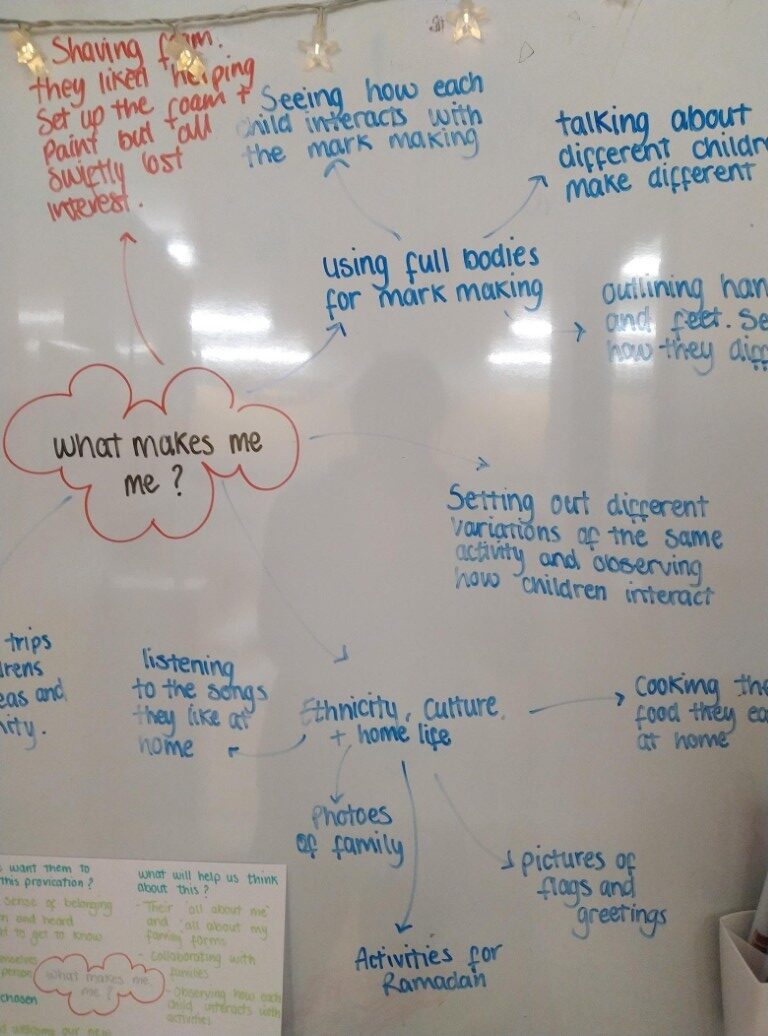 Shaving foam.
they liked helping
set up the foam +
paint but all
swiftly lost
interest.
Seeing how each
child interacts with
the mark making
talking about
different
make different
using full bodies
for mark making
outlining
and feet.
how they
what makes me
me ?
Setting out different
variations of the same
activity and observing
how children interact
trips
and
listening
to the songs
they like at
home
Ethnicity, culture,
+ home life
Cooking
food they
at home
Photoes
of family
pictures of
flags and
greetings
Activities for
Ramadan
want them to
this provication ?
sense of belonging
and heard
to get to know
person
chosen
welcome our new
what makes me
me ?
what will help us think
about this ?
- Their 'all about me'
and 'all about my
family' forms
- Collaborating with
families
- Observing how each
child interacts with
activities